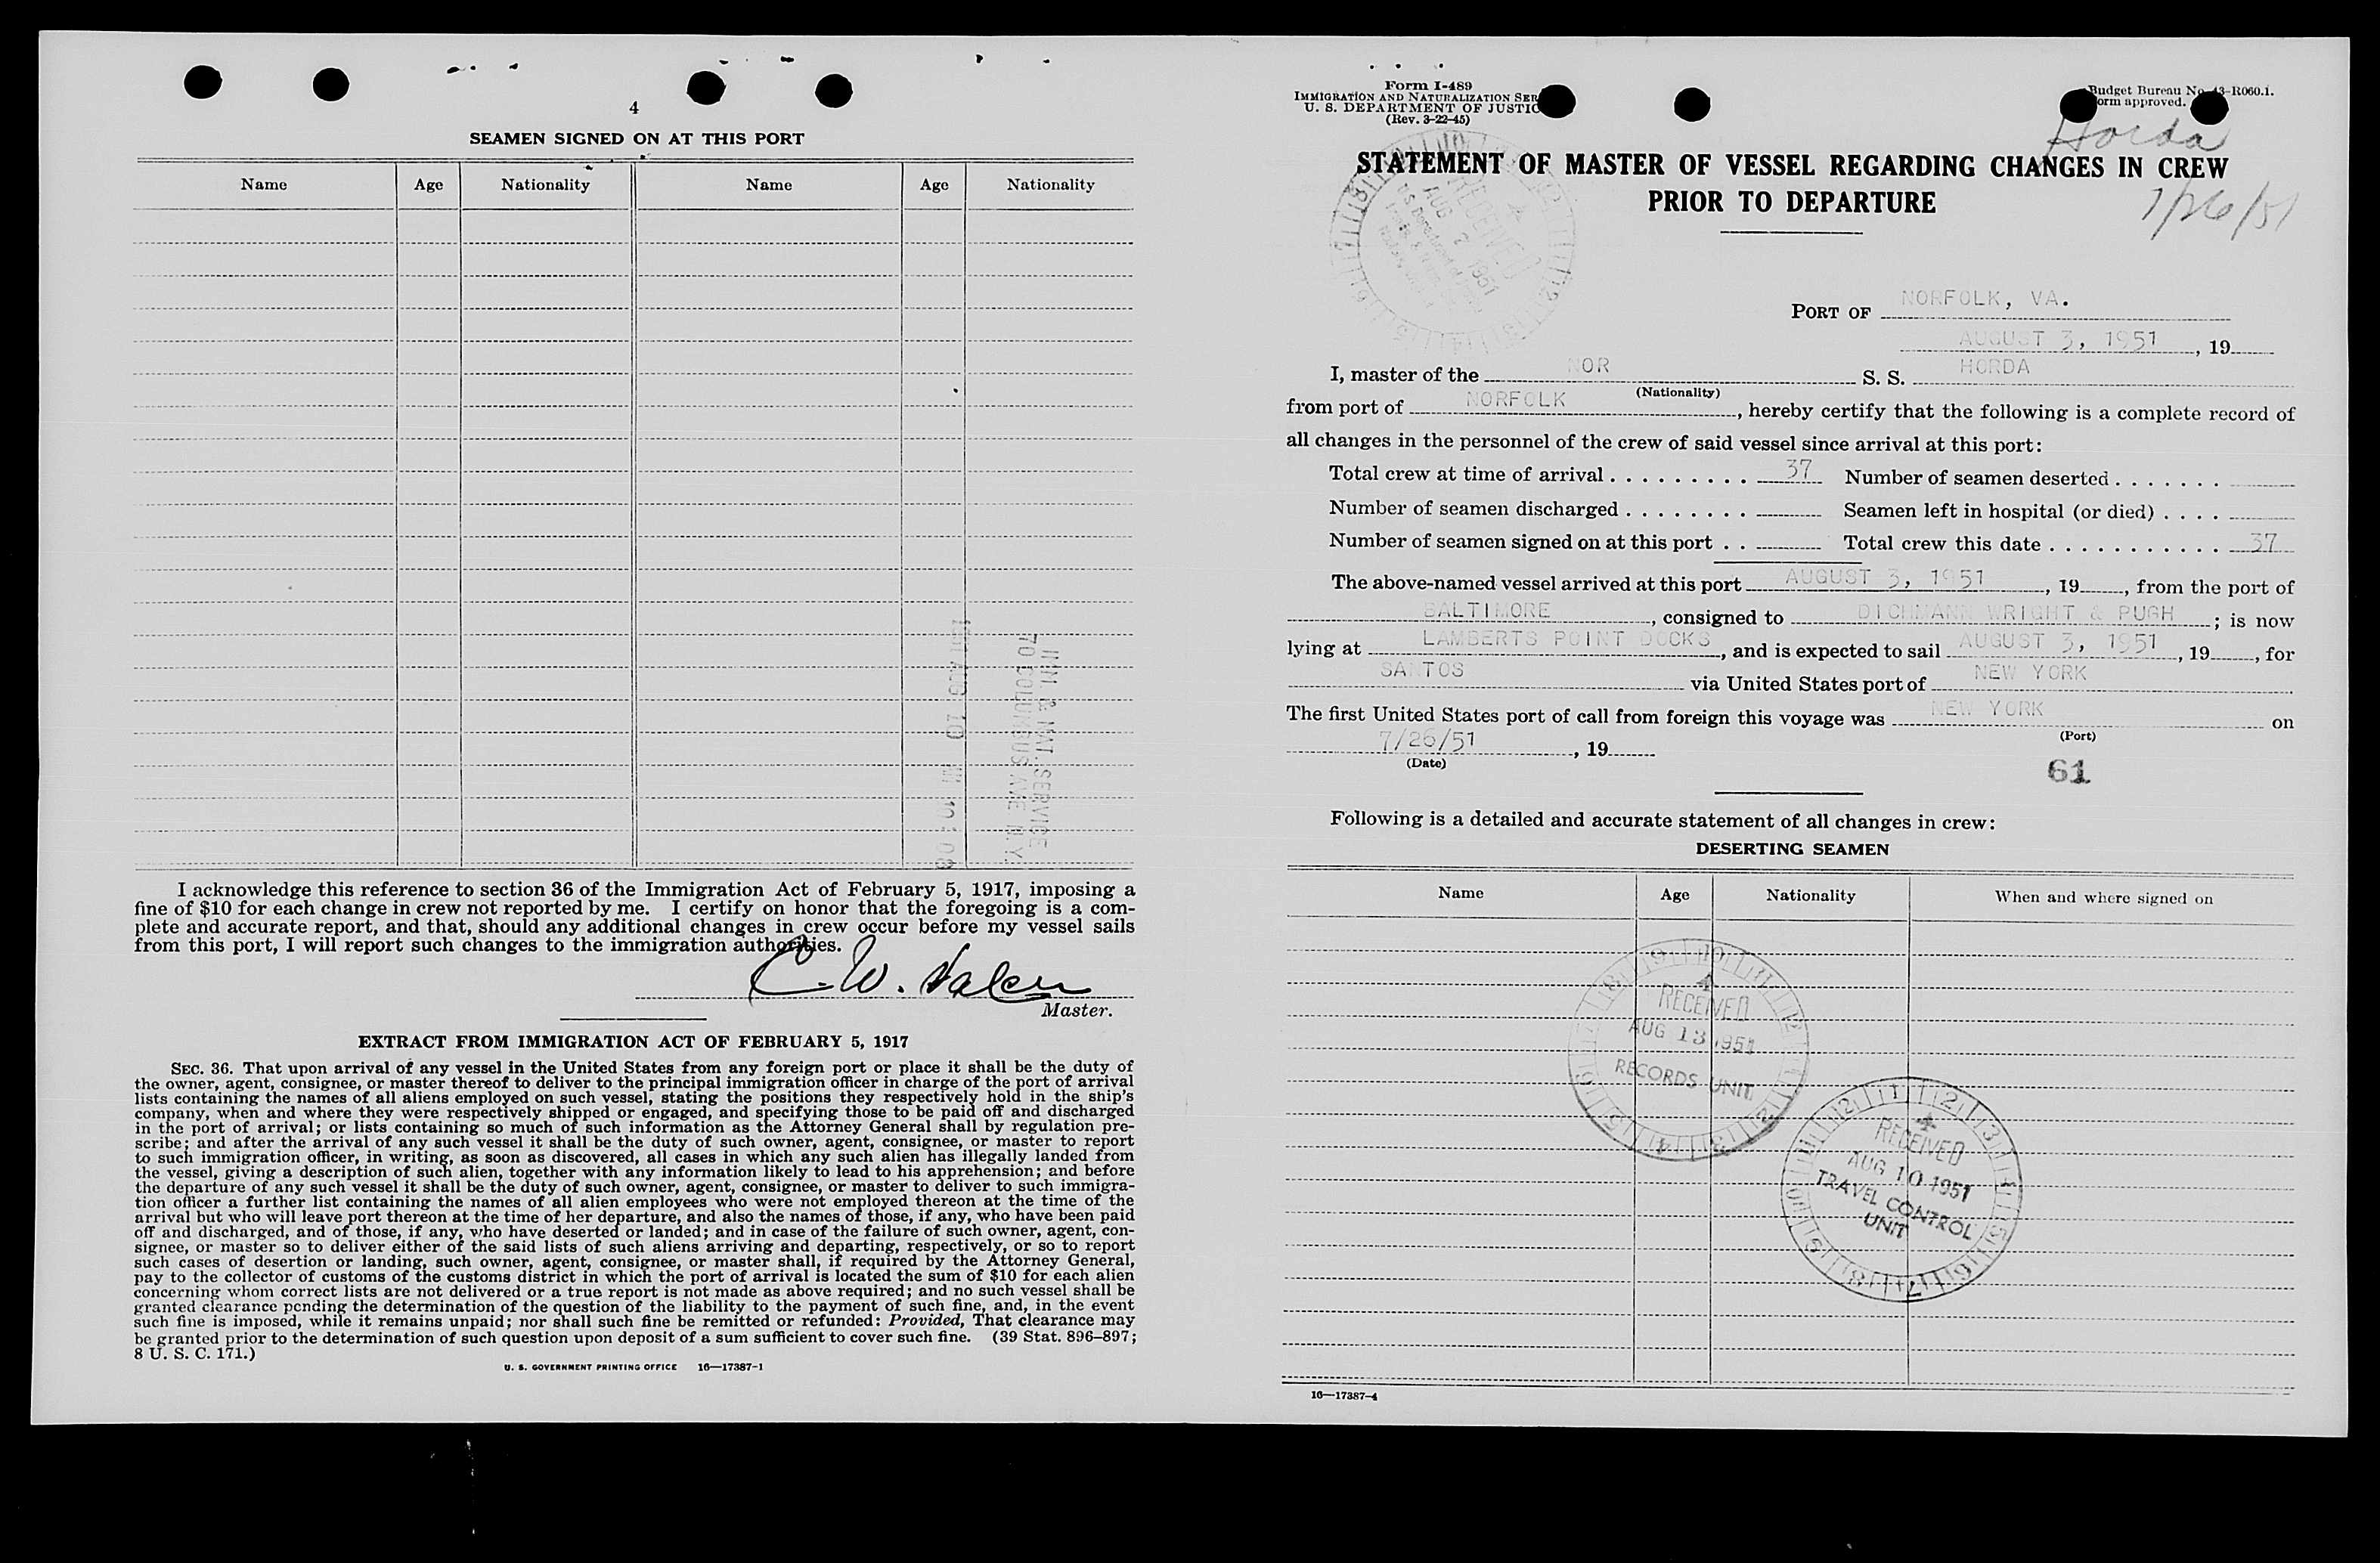 4
SEAMEN SIGNED ON AT THIS PORT
Name Age Nationality Name Age Nationality
IMM. & NAT. SERVICE
70 COLUMBUS AVE N.Y.
1951 AUG 10 AM 10:08
I acknowledge this reference to section 36 of the Immigration Act of February 5, 1917, imposing a
fine of $10 for each change in crew not reported by me. I certify on honor that the foregoing is a com-
plete and accurate report, and that, should any additional changes in crew occur before my vessel sails
from this port, I will report such changes to the immigration authorities.
C. W. Halen
Master.
EXTRACT FROM IMMIGRATION ACT OF FEBRUARY 5, 1917
SEC. 36. That upon arrival of any vessel in the United States from any foreign port or place it shall be the duty of
the owner, agent, consignee, or master thereof to deliver to the principal immigration officer in charge of the port of arrival
lists containing the names of all aliens employed on such vessel, stating the positions they respectively hold in the ship's
company, when and where they were respectively shipped or engaged, and specifying those to be paid off and discharged
in the port of arrival; or lists containing so much of such information as the Attorney General shall by regulation pre-
scribe; and after the arrival of any such vessel it shall be the duty of such owner, agent, consignee, or master to report
to such immigration officer, in writing, as soon as discovered, all cases in which any such alien has illegally landed from
the vessel, giving a description of such alien, together with any information likely to lead to his apprehension; and before
the departure of any such vessel it shall be the duty of such owner, agent, consignee, or master to deliver to such immigra-
tion officer a further list containing the names of all alien employees who were not employed thereon at the time of the
arrival but who will leave port thereon at the time of her departure, and also the names of those, if any, who have been paid
off and discharged, and of those, if any, who have deserted or landed; and in case of the failure of such owner, agent, con-
signee, or master so to deliver either of the said lists of such aliens arriving and departing, respectively, or so to report
such cases of desertion or landing, such owner, agent, consignee, or master shall, if required by the Attorney General,
pay to the collector of customs of the customs district in which the port of arrival is located the sum of $10 for each alien
concerning whom correct lists are not delivered or a true report is not made as above required; and no such vessel shall be
granted clearance pending the determination of the question of the liability to the payment of such fine, and, in the event
such fine is imposed, while it remains unpaid; nor shall such fine be remitted or refunded: Provided, That clearance may
be granted prior to the determination of such question upon deposit of a sum sufficient to cover such fine. (39 Stat. 896–897;
8 U. S. C. 171.)
U. S. GOVERNMENT PRINTING OFFICE 16—17387-1
Form I-489
IMMIGRATION AND NATURALIZATION SER
U. S. DEPARTMENT OF JUSTIC
(Rev. 3-22-45)
Budget Bureau No. 43-R060.1.
orm approved.
Horda
STATEMENT OF MASTER OF VESSEL REGARDING CHANGES IN CREW
PRIOR TO DEPARTURE
7/26/51
RECEIVED
AUG 2 1951
PORT OF NORFOLK, VA.
AUGUST 3, 1951, 19
I, master of the NOR S. S. HORDA
(Nationality)
from port of NORFOLK, hereby certify that the following is a complete record of
all changes in the personnel of the crew of said vessel since arrival at this port:
Total crew at time of arrival 37 Number of seamen deserted
Number of seamen discharged Seamen left in hospital (or died)
Number of seamen signed on at this port Total crew this date 37
The above-named vessel arrived at this port AUGUST 3, 1951, 19, from the port of
BALTIMORE, consigned to DICHMANN WRIGHT & PUGH; is now
lying at LAMBERTS POINT DOCKS, and is expected to sail AUGUST 3, 1951, 19, for
SANTOS via United States port of NEW YORK
The first United States port of call from foreign this voyage was NEW YORK on
(Port)
7/26/51, 19
(Date)
61
Following is a detailed and accurate statement of all changes in crew:
DESERTING SEAMEN
Name Age Nationality When and where signed on
RECEIVED
AUG 13 1951
RECORDS UNIT
RECEIVED
AUG 10 1951
TRAVEL CONTROL
UNIT
16—17387-4